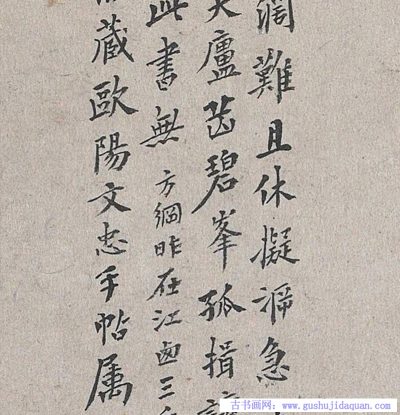 闊難且休擬溯急
廬岳碧峯孤揖
此書無 方綱昨在江西三
藏歐陽文忠手帖属
古书画网:www.gushujidaquan.com